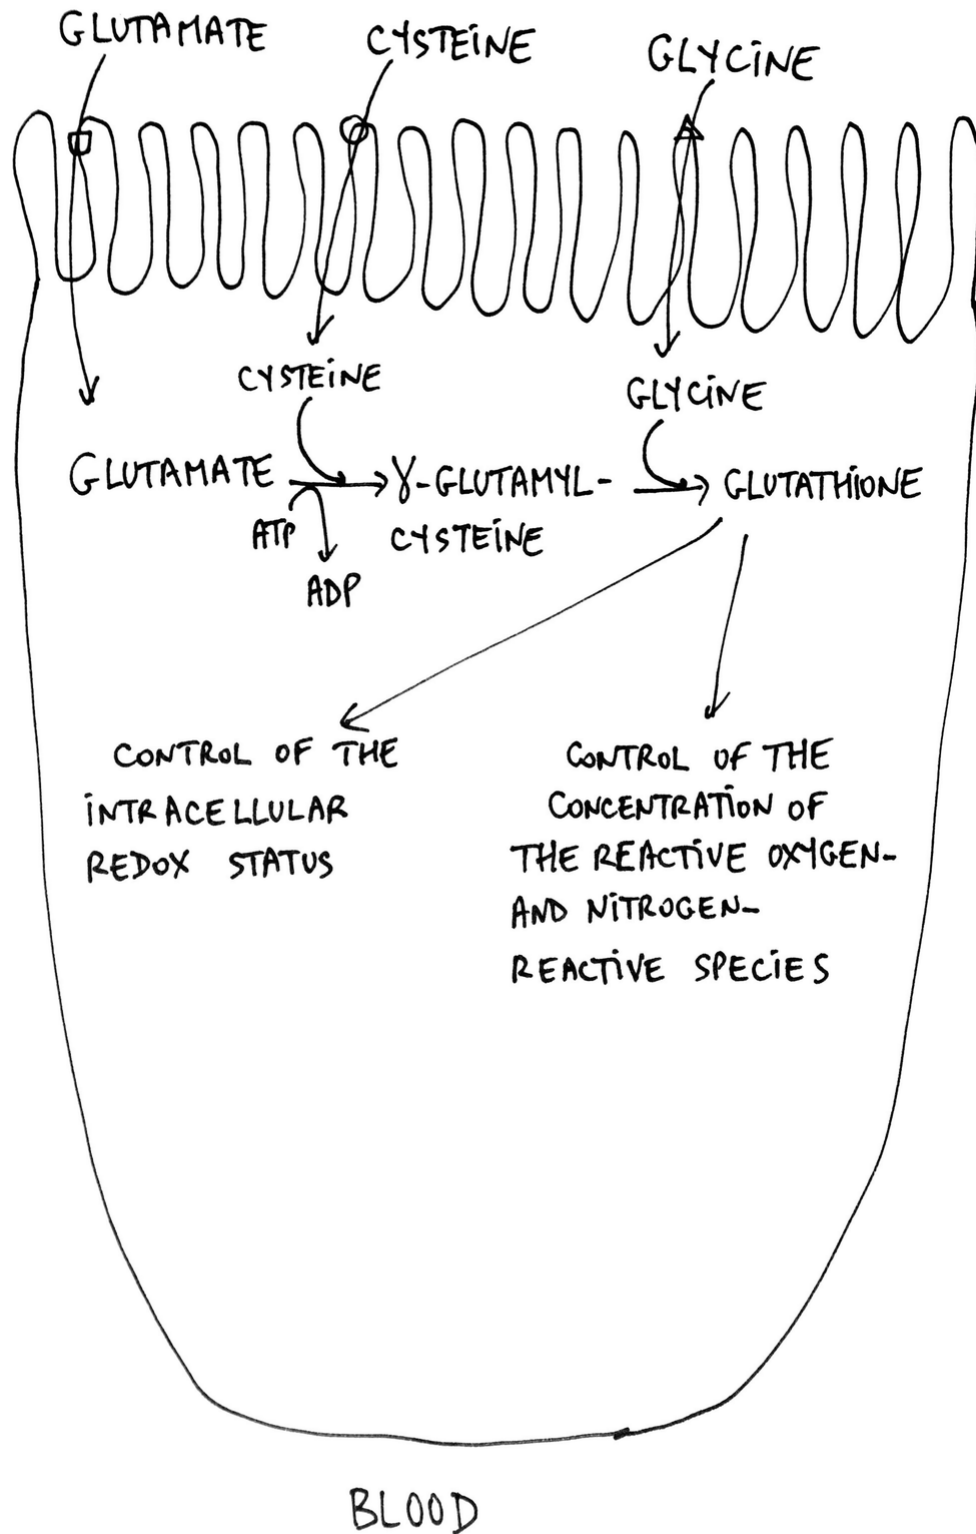 GLUTAMATE
CYSTEINE
GLYCINE
CYSTEINE
GLYCINE
GLUTAMATE
γ-GLUTAMYL-
CYSTEINE
GLUTATHIONE
ATP
ADP
CONTROL OF THE
INTRACELLULAR
REDOX STATUS
CONTROL OF THE
CONCENTRATION OF
THE REACTIVE OXYGEN-
AND NITROGEN-
REACTIVE SPECIES
BLOOD